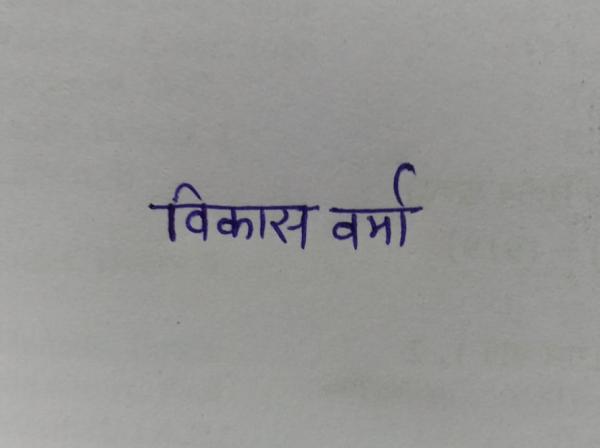 विकास वर्मा